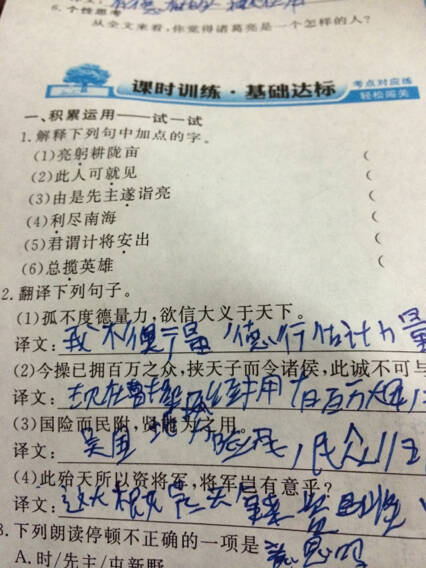 6.个性思考
从全文来看,你觉得诸葛亮是一个怎样的人?
课时训练·基础达标 考点对应练
轻松闯关
一、积累运用——试一试
1.解释下列句中加点的字。
(1)亮躬耕陇亩 (
(2)此人可就见 (
(3)由是先主遂诣亮 (
(4)利尽南海 (
(5)君谓计将安出 (
(6)总揽英雄 (
2.翻译下列句子。
(1)孤不度德量力,欲信大义于天下。
译文:我不 量 德行估计力量
(2)今操已拥百万之众,挟天子而令诸侯,此诚不可与
译文:现在曹操已经拥有百万大军
(3)国险而民附,贤能为之用。
译文: 地势 民众
(4)此殆天所以资将军,将军岂有意乎?
译文:这大概是天
3.下列朗读停顿不正确的一项是 意思吗
A.时/先主/屯新野